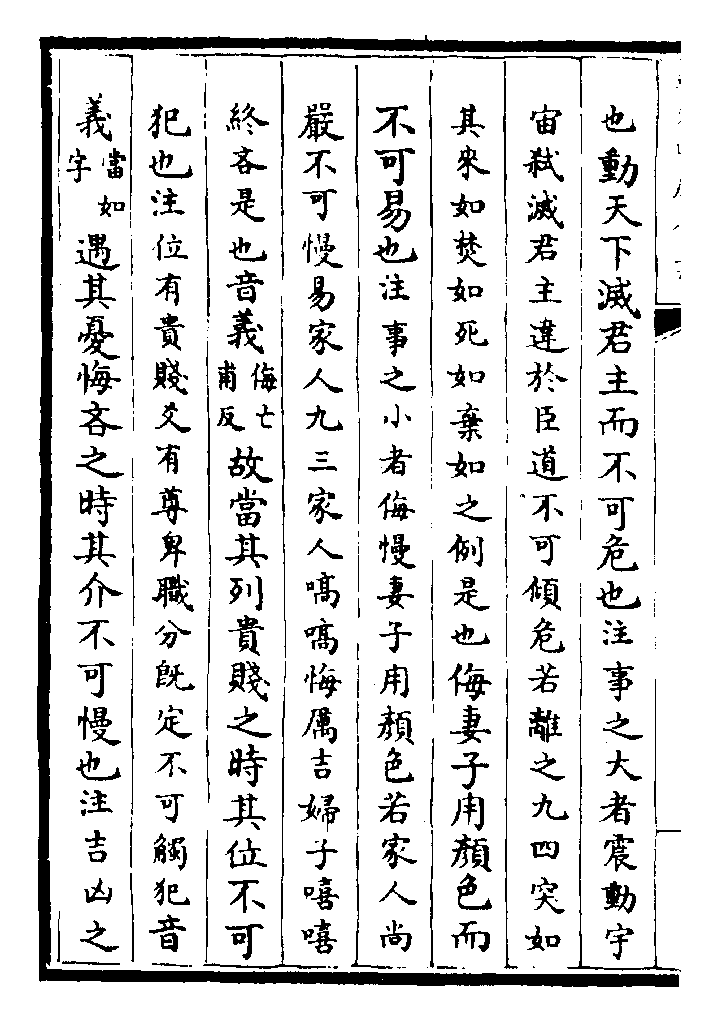 也動天下滅君主而不可危也注事之大者震動宇
宙弑滅君主違於臣道不可傾危若離之九四突如
其來如焚如死如棄如之例是也侮妻子用顏色而
不可易也注事之小者侮慢妻子用顏色若家人尚
嚴不可慢易家人九三家人嗃嗃悔厲吉婦子嘻嘻
終吝是也音義侮亡甫反故當其列貴賤之時其位不可
犯也注位有貴賤爻有尊卑職分旣定不可觸犯音
義當如字遇其憂悔吝之時其介不可慢也注吉凶之